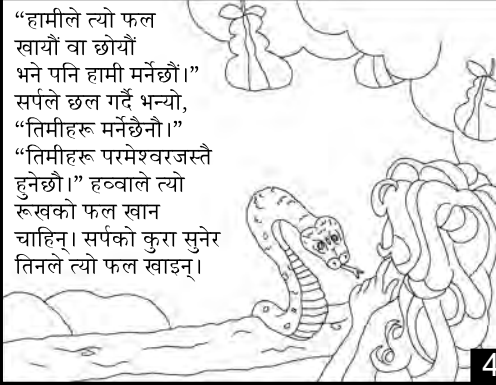 “हामीले त्यो फल
खायौं वा छोयौं
भने पनि हामी मर्नेछौं।”
सर्पले छल गर्दै भन्यो,
“तिमीहरू मर्नेछैनौ।”
“तिमीहरू परमेश्वरजस्तै
हुनेछौ।” हव्वाले त्यो
रूखको फल खान
चाहिन्। सर्पको कुरा सुनेर
तिनले त्यो फल खाइन्।
4